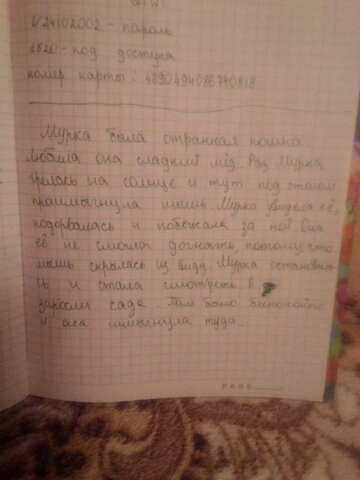 V24102002 - пароль
4820 - код доступа
номер карты: 4890494086740818
Мурка была странная кошка
любила она сладкий мёд. Раз Мурка
грелась на солнце и тут под столом
прошмыгнула мышь. Мурка видела её,
подорвалась и побежала за ней. Она
её не смогла догнать, потому что
мышь скрылась из виду. Мурка остановила
сь и стала смотреть в
заросли сада. Там было
и она шмыгнула туда.